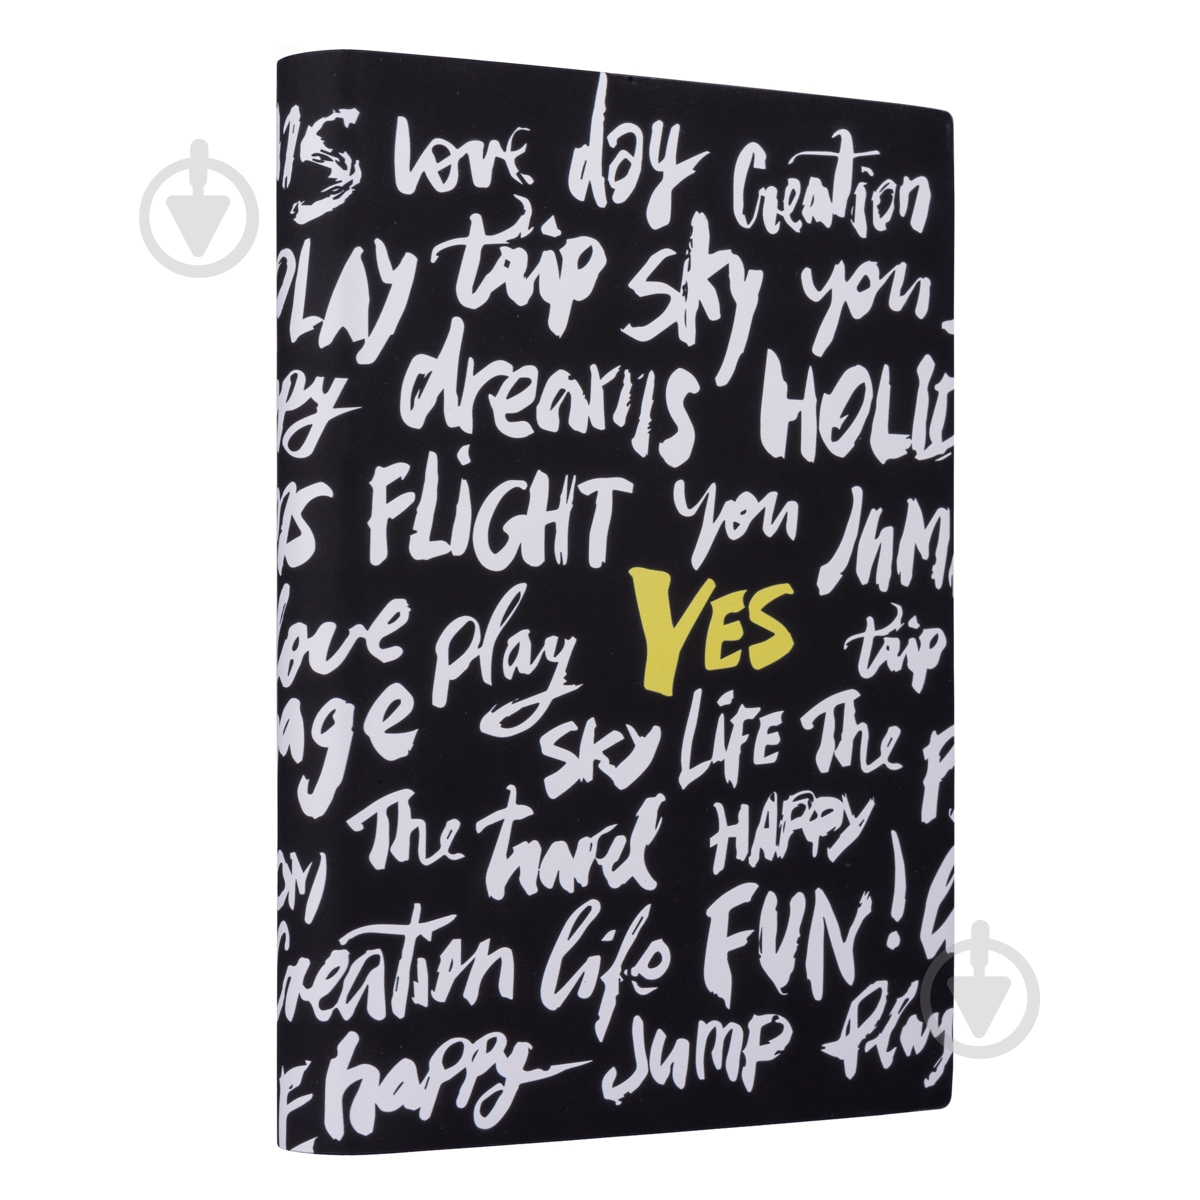 love day Creation
PLAY trip sky you
dreams HOLID
FLiGHT you JUM
love play YES trip
age SKY LiFE The
The travel HAPPY
Creation life FUN!
happy Jump Play